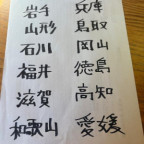 岩手 兵庫
山形 鳥取
石川 岡山
福井 徳島
滋賀 高知
和歌山 愛媛